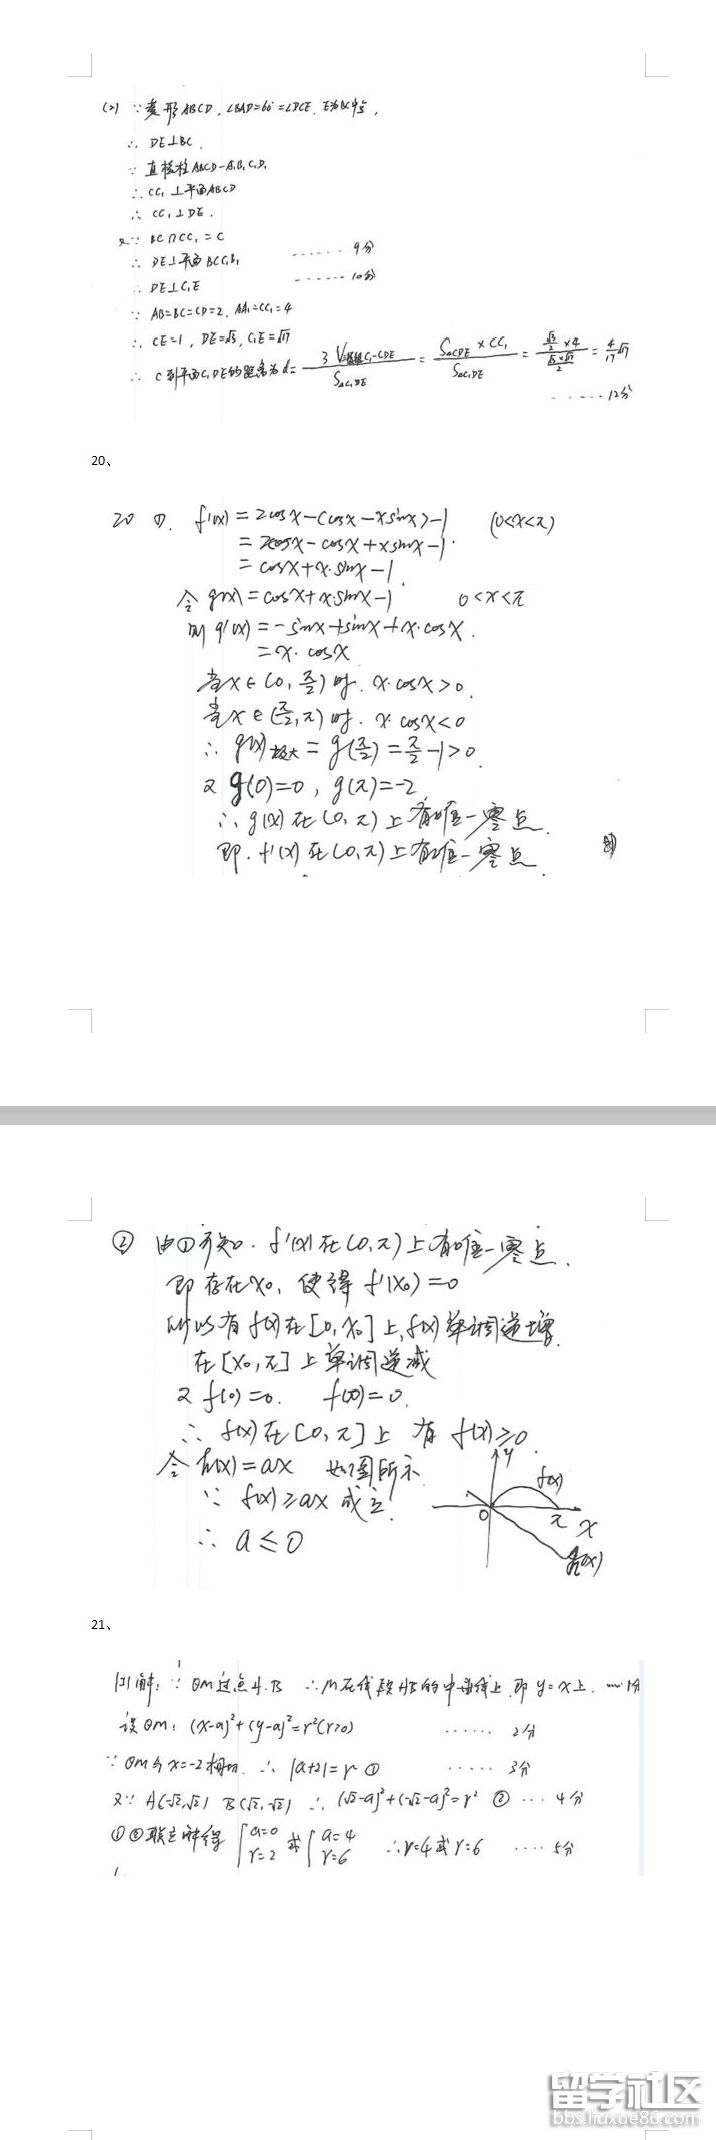 (2) ∵ 菱形ABCD, ∠BAD=60°=∠DCE, E为BC中点,
∴ DE⊥BC.
∵ 直棱柱ABCD-A₁B₁C₁D₁
∴ CC₁⊥平面ABCD
∴ CC₁⊥DE.
又∵ BC∩CC₁=C
∴ DE⊥平面BCC₁B₁ ……9分
∴ DE⊥C₁E ……10分
∵ AB=BC=CD=2, AA₁=CC₁=4
∴ CE=1, DE=√3, C₁E=√17
∴ C到平面C₁DE的距离为d= 3V棱锥C₁-CDE / S△C₁DE = S△CDE×CC₁ / S△C₁DE = (√3/2 ×4) / (√3×√17/2) = 4/17 √17
……12分
20、
20 ①. f'(x)=2cosx-(cosx-xsinx)-1 (0<x<π)
=2cosx-cosx+xsinx-1.
=cosx+x·sinx-1.
令 g(x)=cosx+x·sinx-1 0<x<π
则 g'(x)=-sinx+sinx+x·cosx.
=x·cosx
当x∈(0, π/2)时. x·cosx>0.
当x∈(π/2, π)时. x·cosx<0
∴ g(x)极大=g(π/2)=π/2-1>0.
又 g(0)=0, g(π)=-2
∴ g(x)在(0,π)上有唯一零点.
即. f'(x)在(0,π)上有唯一零点.
② 由①可知. f'(x)在(0,π)上有唯一零点.
即存在x₀, 使得f'(x₀)=0
所以有f(x)在[0,x₀]上,f(x)单调递增.
在[x₀,π]上单调递减
又 f(0)=0. f(π)=0.
∴ f(x)在[0,π]上 有 f(x)≥0.
令 h(x)=ax 如图所示.
∵ f(x)≥ax 成立!
∴ a≤0
y
f(x)
0
π
x
h(x)
21、
(1)解: ∵ ⊙M过点A.B ∴ M在线段AB的中垂线上.即 y=x上. …1分
设⊙M: (x-a)²+(y-a)²=r²(r>0) ……2分
∵ ⊙M与x=-2相切. ∴ |a+2|=r ① ……3分
又∵ A(-√2,√2) B(√2,-√2) ∴ (√2-a)²+(-√2-a)²=r² ② …4分
①②联立解得 {a=0 r=2 或 {a=4 r=6 ∴ r=4或r=6 ……5分
留学社区
bbs.liuxue86.com